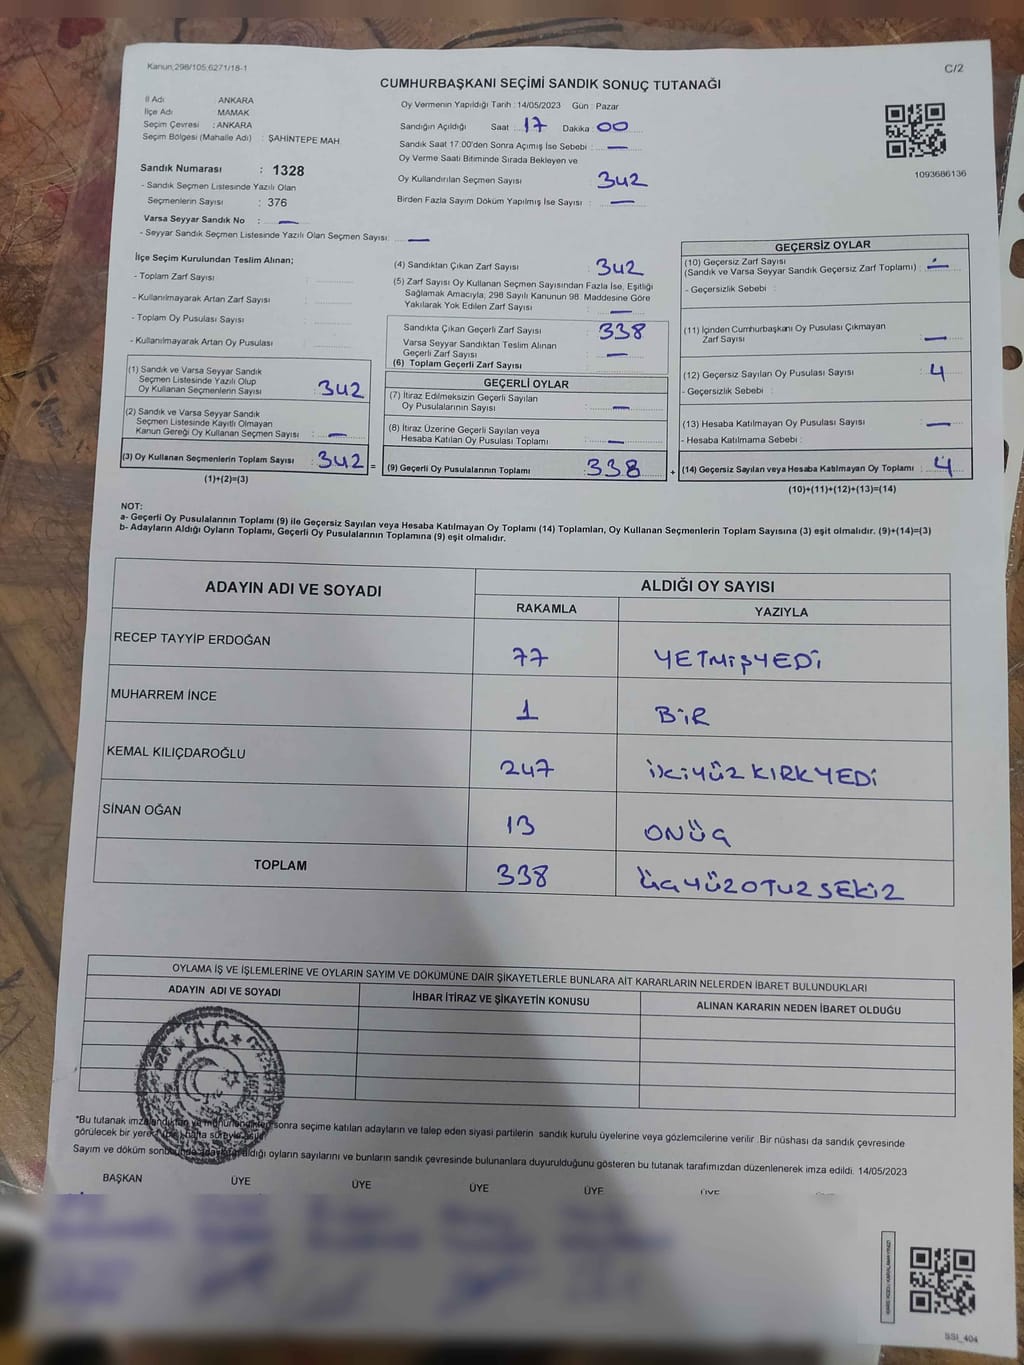 Kanun 298/105,6271/18-1
C/2
CUMHURBAŞKANI SEÇİMİ SANDIK SONUÇ TUTANAĞI
İl Adı ANKARA
İlçe Adı MAMAK
Seçim Çevresi : ANKARA
Seçim Bölgesi (Mahalle Adı) : ŞAHİNTEPE MAH
Sandık Numarası : 1328
- Sandık Seçmen Listesinde Yazılı Olan
Seçmenlerin Sayısı : 376
Varsa Seyyar Sandık No : —
- Seyyar Sandık Seçmen Listesinde Yazılı Olan Seçmen Sayısı: —
Oy Vermenin Yapıldığı Tarih : 14/05/2023 Gün : Pazar
Sandığın Açıldığı Saat : 17 Dakika : 00
Sandık Saat 17:00'den Sonra Açımış İse Sebebi : —
Oy Verme Saati Bitiminde Sırada Bekleyen ve
Oy Kullandırılan Seçmen Sayısı : 342
Birden Fazla Sayım Döküm Yapılmış İse Sayısı : —
1093686136
İlçe Seçim Kurulundan Teslim Alınan;
- Toplam Zarf Sayısı :
- Kullanılmayarak Artan Zarf Sayısı :
- Toplam Oy Pusulası Sayısı :
- Kullanılmayarak Artan Oy Pusulası :
(1) Sandık ve Varsa Seyyar Sandık
Seçmen Listesinde Yazılı Olup
Oy Kullanan Seçmenlerin Sayısı : 342
(2) Sandık ve Varsa Seyyar Sandık
Seçmen Listesinde Kayıtlı Olmayan
Kanun Gereği Oy Kullanan Seçmen Sayısı : —
(3) Oy Kullanan Seçmenlerin Toplam Sayısı : 342 =
(1)+(2)=(3)
(4) Sandıktan Çıkan Zarf Sayısı : 342
(5) Zarf Sayısı Oy Kullanan Seçmen Sayısından Fazla İse, Eşitliği
Sağlamak Amacıyla, 298 Sayılı Kanunun 98. Maddesine Göre
Yakılarak Yok Edilen Zarf Sayısı : —
Sandıkta Çıkan Geçerli Zarf Sayısı : 338
Varsa Seyyar Sandıktan Teslim Alınan
Geçerli Zarf Sayısı : —
(6) Toplam Geçerli Zarf Sayısı :
GEÇERLİ OYLAR
(7) İtiraz Edilmeksizin Geçerli Sayılan
Oy Pusulalarının Sayısı : —
(8) İtiraz Üzerine Geçerli Sayılan veya
Hesaba Katılan Oy Pusulası Toplamı : —
(9) Geçerli Oy Pusulalarının Toplamı : 338 +
GEÇERSİZ OYLAR
(10) Geçersiz Zarf Sayısı
(Sandık ve Varsa Seyyar Sandık Geçersiz Zarf Toplamı) : —
- Geçersizlik Sebebi :
(11) İçinden Cumhurbaşkanı Oy Pusulası Çıkmayan
Zarf Sayısı : —
(12) Geçersiz Sayılan Oy Pusulası Sayısı : 4
- Geçersizlik Sebebi :
(13) Hesaba Katılmayan Oy Pusulası Sayısı : —
- Hesaba Katılmama Sebebi :
(14) Geçersiz Sayılan veya Hesaba Katılmayan Oy Toplamı : 4
(10)+(11)+(12)+(13)=(14)
NOT:
a- Geçerli Oy Pusulalarının Toplamı (9) ile Geçersiz Sayılan veya Hesaba Katılmayan Oy Toplamı (14) Toplamları, Oy Kullanan Seçmenlerin Toplam Sayısına (3) eşit olmalıdır. (9)+(14)=(3)
b- Adayların Aldığı Oyların Toplamı, Geçerli Oy Pusulalarının Toplamına (9) eşit olmalıdır.
ADAYIN ADI VE SOYADI ALDIĞI OY SAYISI
RAKAMLA YAZIYLA
RECEP TAYYİP ERDOĞAN 77 YETMİŞYEDİ
MUHARREM İNCE 1 BİR
KEMAL KILIÇDAROĞLU 247 İKİYÜZKIRKYEDİ
SİNAN OĞAN 13 ONÜÇ
TOPLAM 338 ÜÇYÜZOTUZSEKİZ
OYLAMA İŞ VE İŞLEMLERİNE VE OYLARIN SAYIM VE DÖKÜMÜNE DAİR ŞİKAYETLERLE BUNLARA AİT KARARLARIN NELERDEN İBARET BULUNDUKLARI
ADAYIN ADI VE SOYADI İHBAR İTİRAZ VE ŞİKAYETİN KONUSU ALINAN KARARIN NEDEN İBARET OLDUĞU
T.C.
*Bu tutanak imzalandıktan ve mühürlendikten sonra seçime katılan adayların ve talep eden siyasi partilerin sandık kurulu üyelerine veya gözlemcilerine verilir. Bir nüshası da sandık çevresinde
görülecek bir yere (bir) hafta süreyle asılır.
Sayım ve döküm sonucunda adayların aldığı oyların sayılarını ve bunların sandık çevresinde bulunanlara duyurulduğunu gösteren bu tutanak tarafımızdan düzenlenerek imza edildi. 14/05/2023
BAŞKAN ÜYE ÜYE ÜYE ÜYE ÜYE
SSI_404